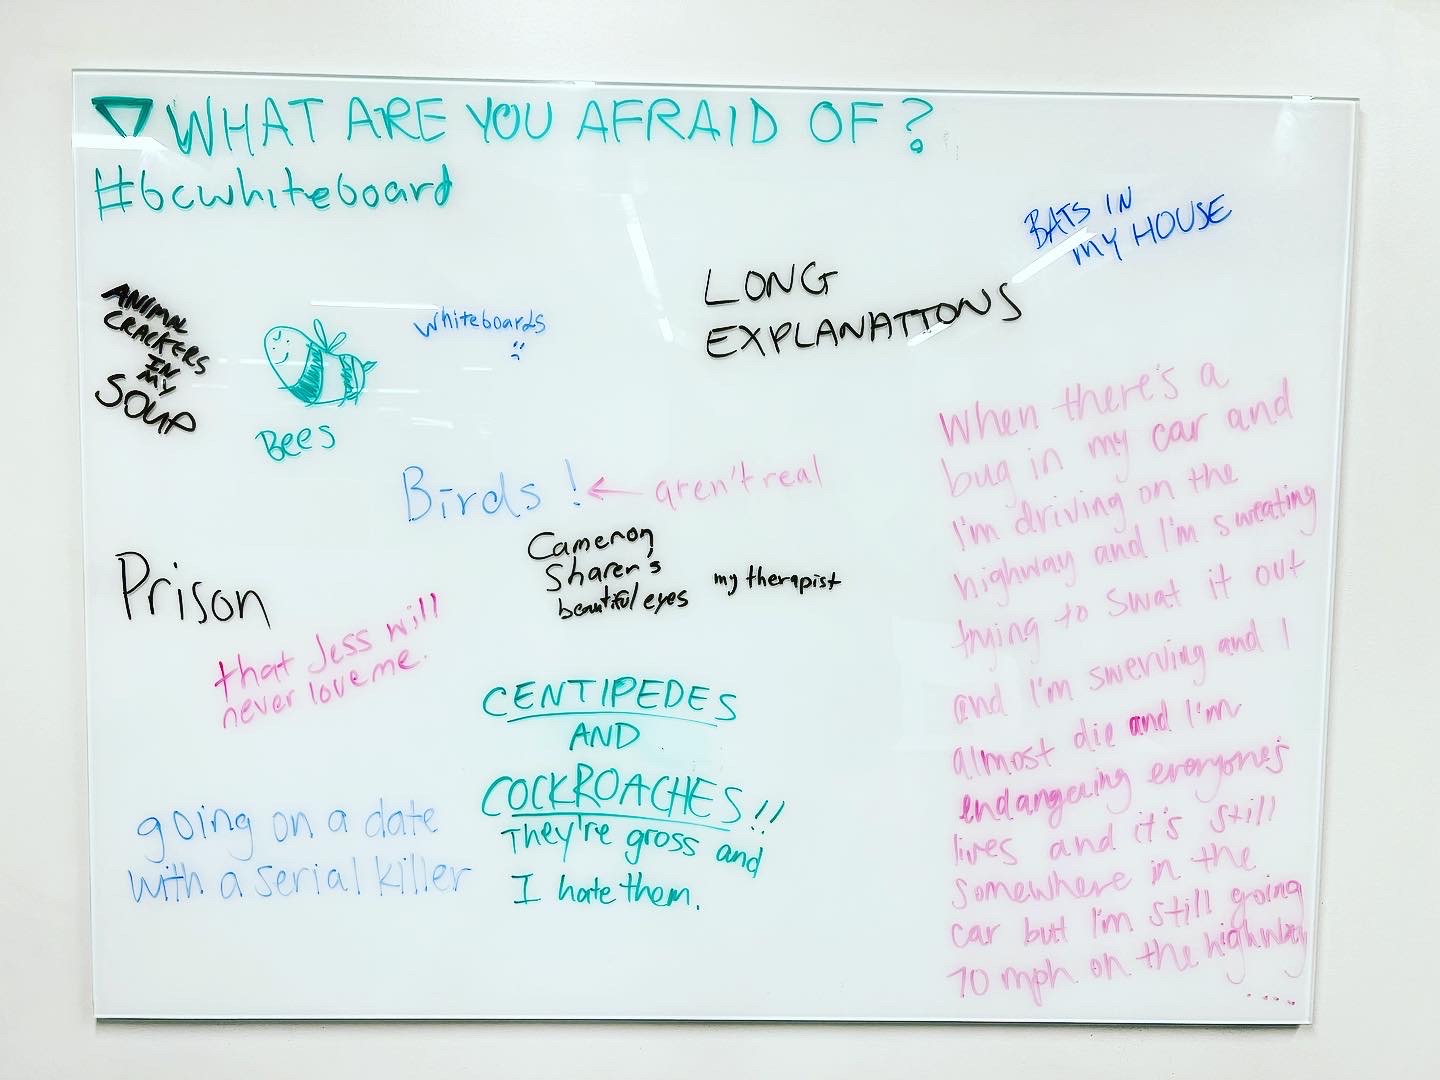 WHAT ARE YOU AFRAID OF?
#bcwhiteboard
BATS IN
MY HOUSE
LONG
EXPLANATIONS
ANIMAL
CRACKERS
IN
MY
SOUP
Bees
whiteboards
:(
Birds ! ← aren't real
Cameron
Sharer's
beautiful eyes
my therapist
Prison
that Jess will
never love me.
CENTIPEDES
AND
COCKROACHES!!
They're gross and
I hate them.
going on a date
with a serial killer
When there's a
bug in my car and
I'm driving on the
highway and I'm sweating
trying to swat it out
and I'm swerving and I
almost die and I'm
endangering everyone's
lives and it's still
somewhere in the
car but I'm still going
70 mph on the highway
....